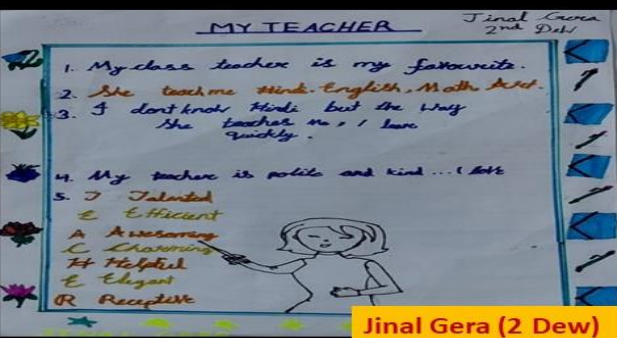 MY TEACHER
Jinal Gera
2nd Dew
1. My class teacher is my favourite.
2. She teach me Hindi. English, Math
3. I dont know Hindi but the way
She teaches me, I
quickly.
4. My teacher is polite and kind...I
5. T Talented
E Efficient
A Awesoming
C Charming
H Helpful
E Elegant
R Receptive
Jinal Gera (2 Dew)